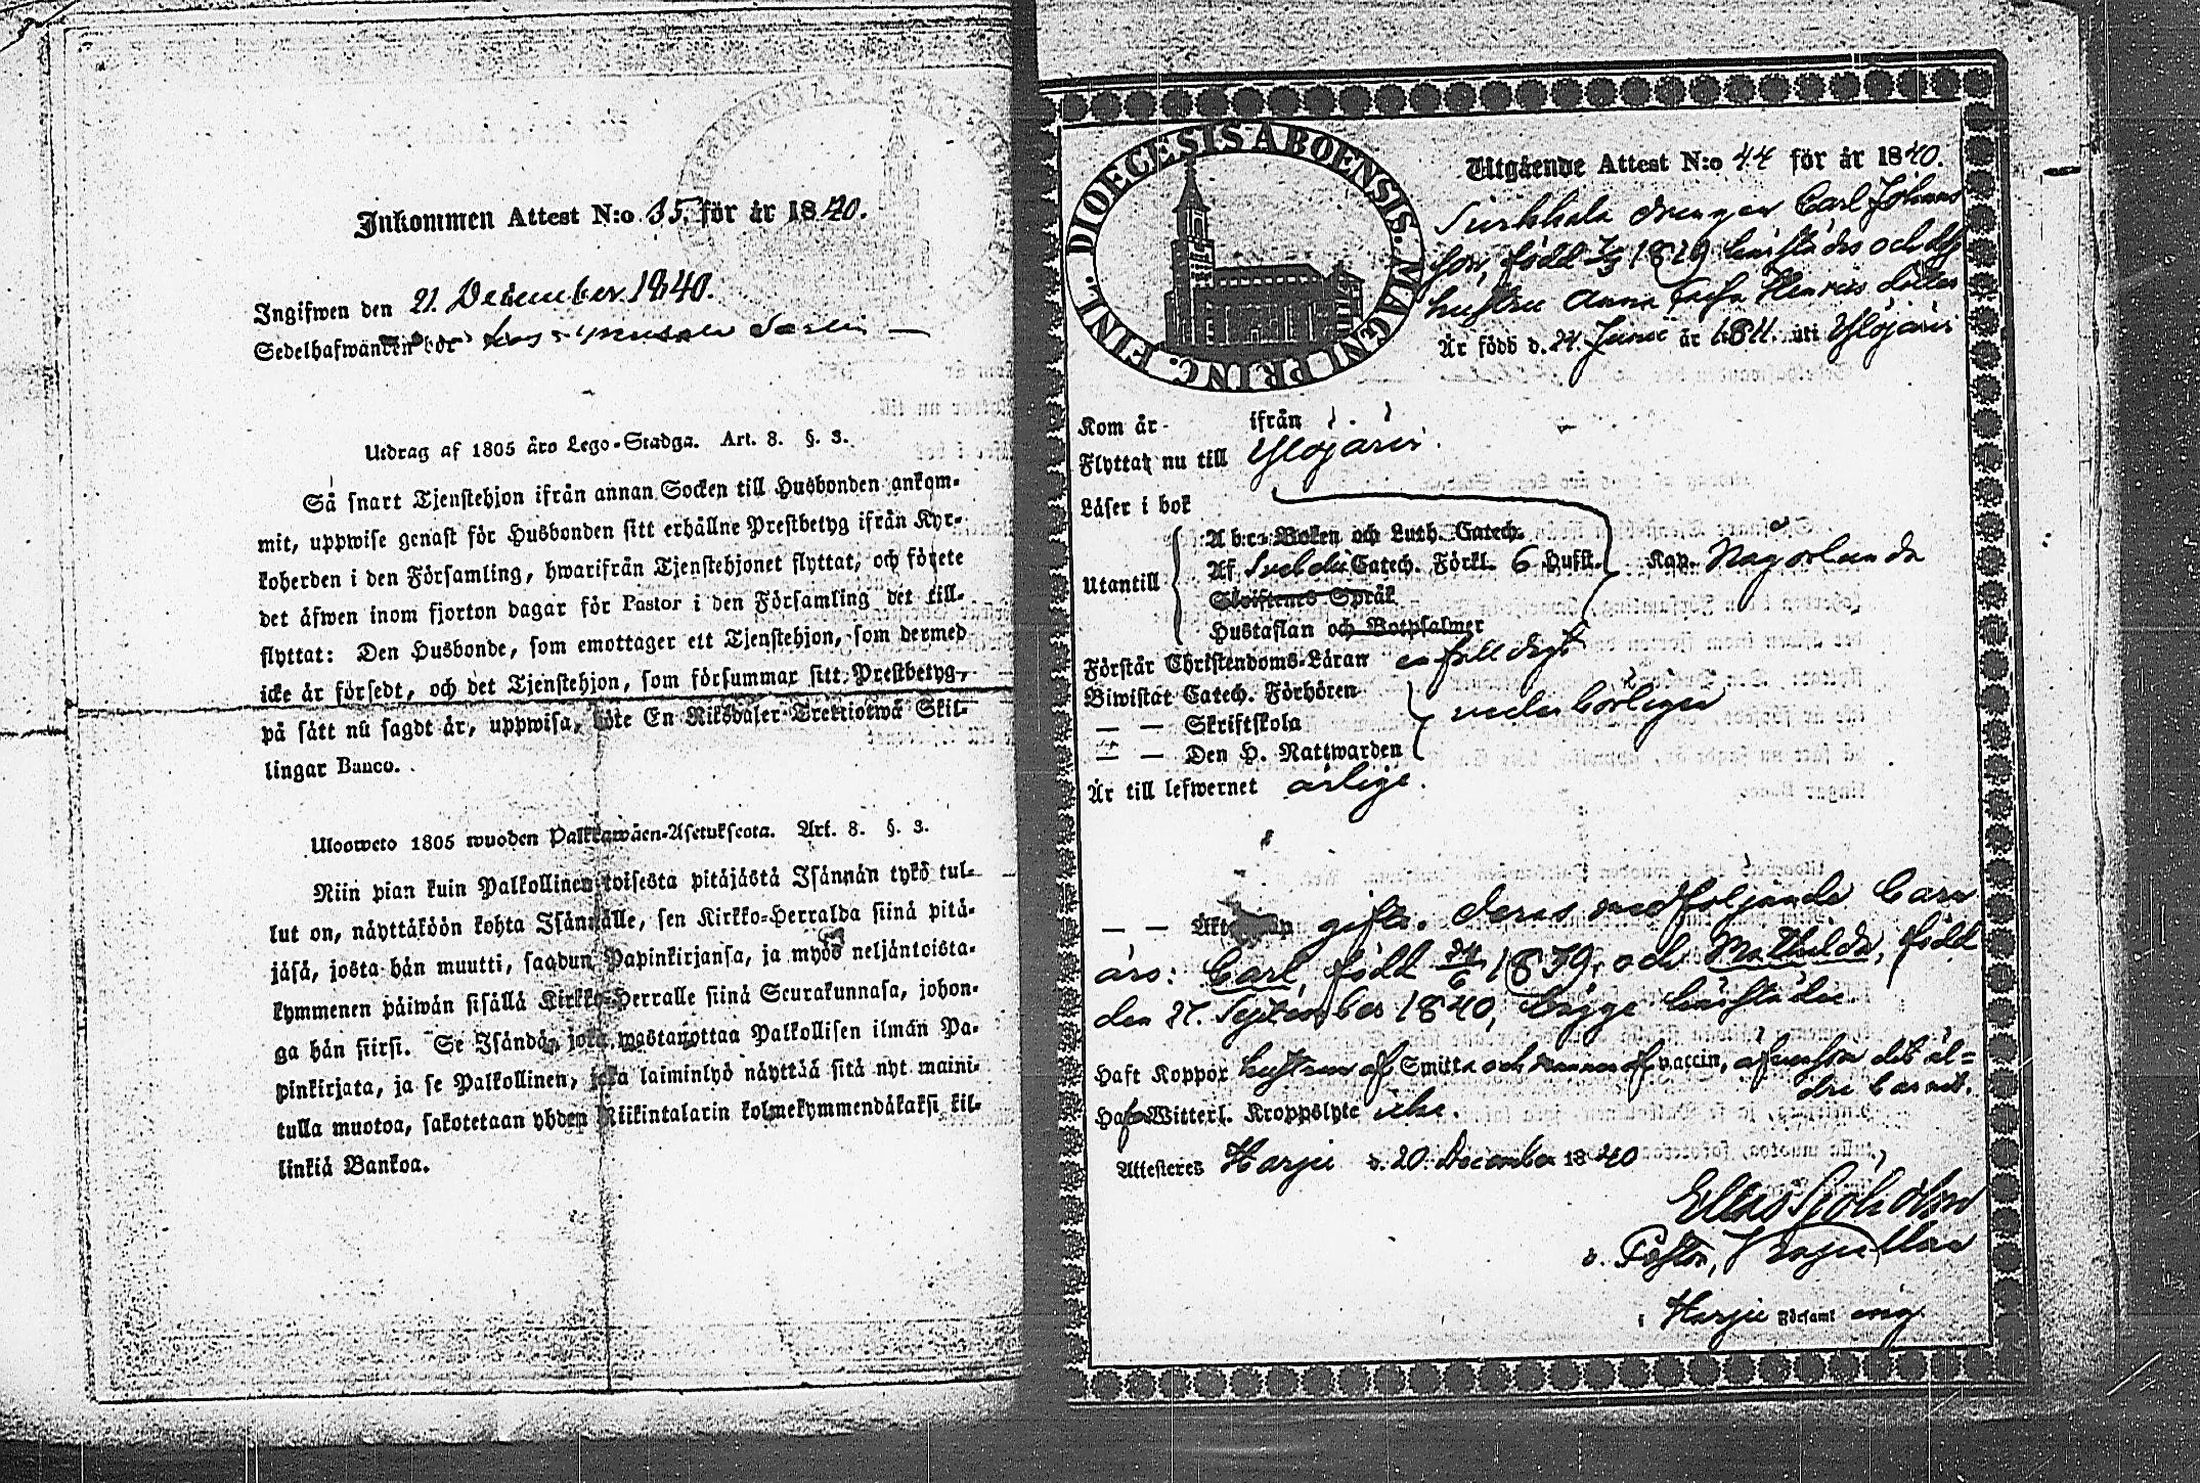 Inkommen Attest N:o 35. för år 1840.
Ingifwen den 21. December 1840.
Sedelhafwanden bor
Utdrag af 1805 års Lego-Stadga. Art. 8. §. 3.
Så snart Tjenstehjon ifrån annan Socken till Husbonden ankom-
mit, uppwise genast för Husbonden sitt erhållne Prestbetyg ifrån Kyr-
koherden i den Församling, hwarifrån Tjenstehjonet flyttat, och förete
det äfwen inom fjorton dagar för Pastor i den Församling det till-
flyttat: Den Husbonde, som emottager ett Tjenstehjon, som dermed
icke är försedt, och det Tjenstehjon, som försummar sitt Prestbetyg,
på sätt nu sagdt är, uppwisa, böte En Riksdaler Trettiotwå Skil-
lingar Banco.
Ulosweto 1805 wuoden Palkkawäen-Asetuksesta. Art. 8. §. 3.
Niin pian kuin Palkollinen toisesta pitäjästä Isännän tykö tul-
lut on, näyttäköön kohta Isännälle, sen Kirkko-Herralda siinä pitä-
jäsä, josta hän muutti, saadun Papinkirjansa, ja myös neljäntoista-
kymmenen päiwän sisällä Kirkko-Herralle siinä Seurakunnasa, johon-
ga hän siirsi. Se Isändä, joka wastanottaa Palkollisen ilman Pa-
pinkirjata, ja se Palkollinen, joka laiminlyö näyttää sitä nyt maini-
tulla muotoa, sakotetaan yhden Riikintalarin kolmekymmendäkaksi kil-
linkiä Bankoa.
DIOECESIS ABOENSIS. MAGNI PRINC. FINL.
Utgående Attest N:o 44 för år 1840.
drengen Carl Johans
son, född 1819 och dess
hustru Anna Henriks dotter
Är född d. 24. Junii år 1811. uti Ylöjärvi
Kom år ifrån
Flyttar nu till Ylöjärvi.
Läser i bok
Utantill
A b c-Boken och Luth. Catech.
Af Svebelii Catech. Förkl. 6 Hufst. Kap. Någorlunda
Skriftenes Språk
Hustaflan och Botpsalmer
Förstår Christendoms-Läran enfalldigt
Biwistat Catech. Förhören
— — Skriftskola vederbörligen
— — Den H. Nattwarden
Är till lefwernet ärlige.
— — Äktenskap gifte. Deras medföljande barn
äro: Carl, född 24/6 1839, och Mathilda, född
den 27. September 1840, begge
Haft Koppor hustrun af Smitta och mannen af vaccin, äfvensom det äl=
dre barnet.
Hafwa Witterl. Kroppslyte icke.
Attesteres Harju d. 20. December 1840
v. Pastor, Kapellan
i Harju Församl ing.